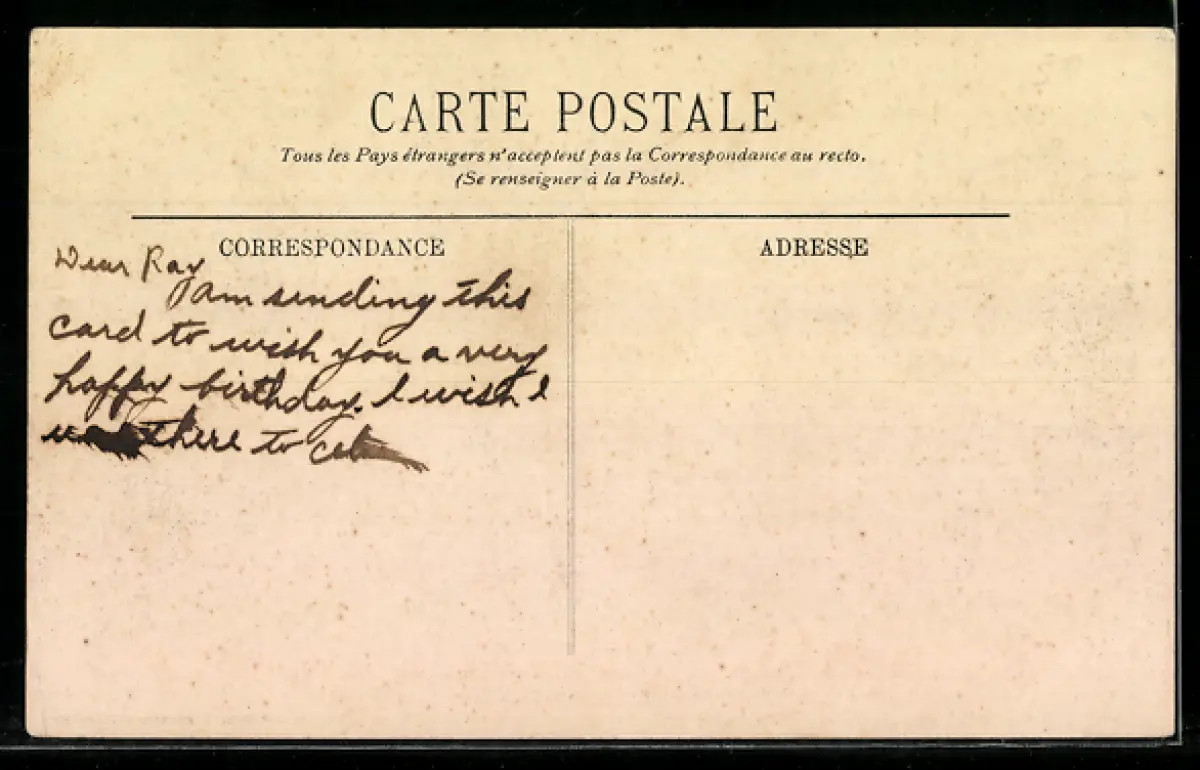 CARTE POSTALE
Tous les Pays étrangers n'acceptent pas la Correspondance au recto.
(Se renseigner à la Poste).
CORRESPONDANCE
ADRESSE
Dear Ray
I am sending this
card to wish you a very
happy birthday. I wish I
there to